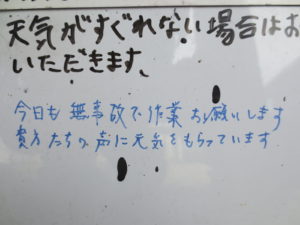 天気がすぐれない場合はお
いただきます、
今日も無事故で作業お願いします
貴方たちの声に元気をもらっています